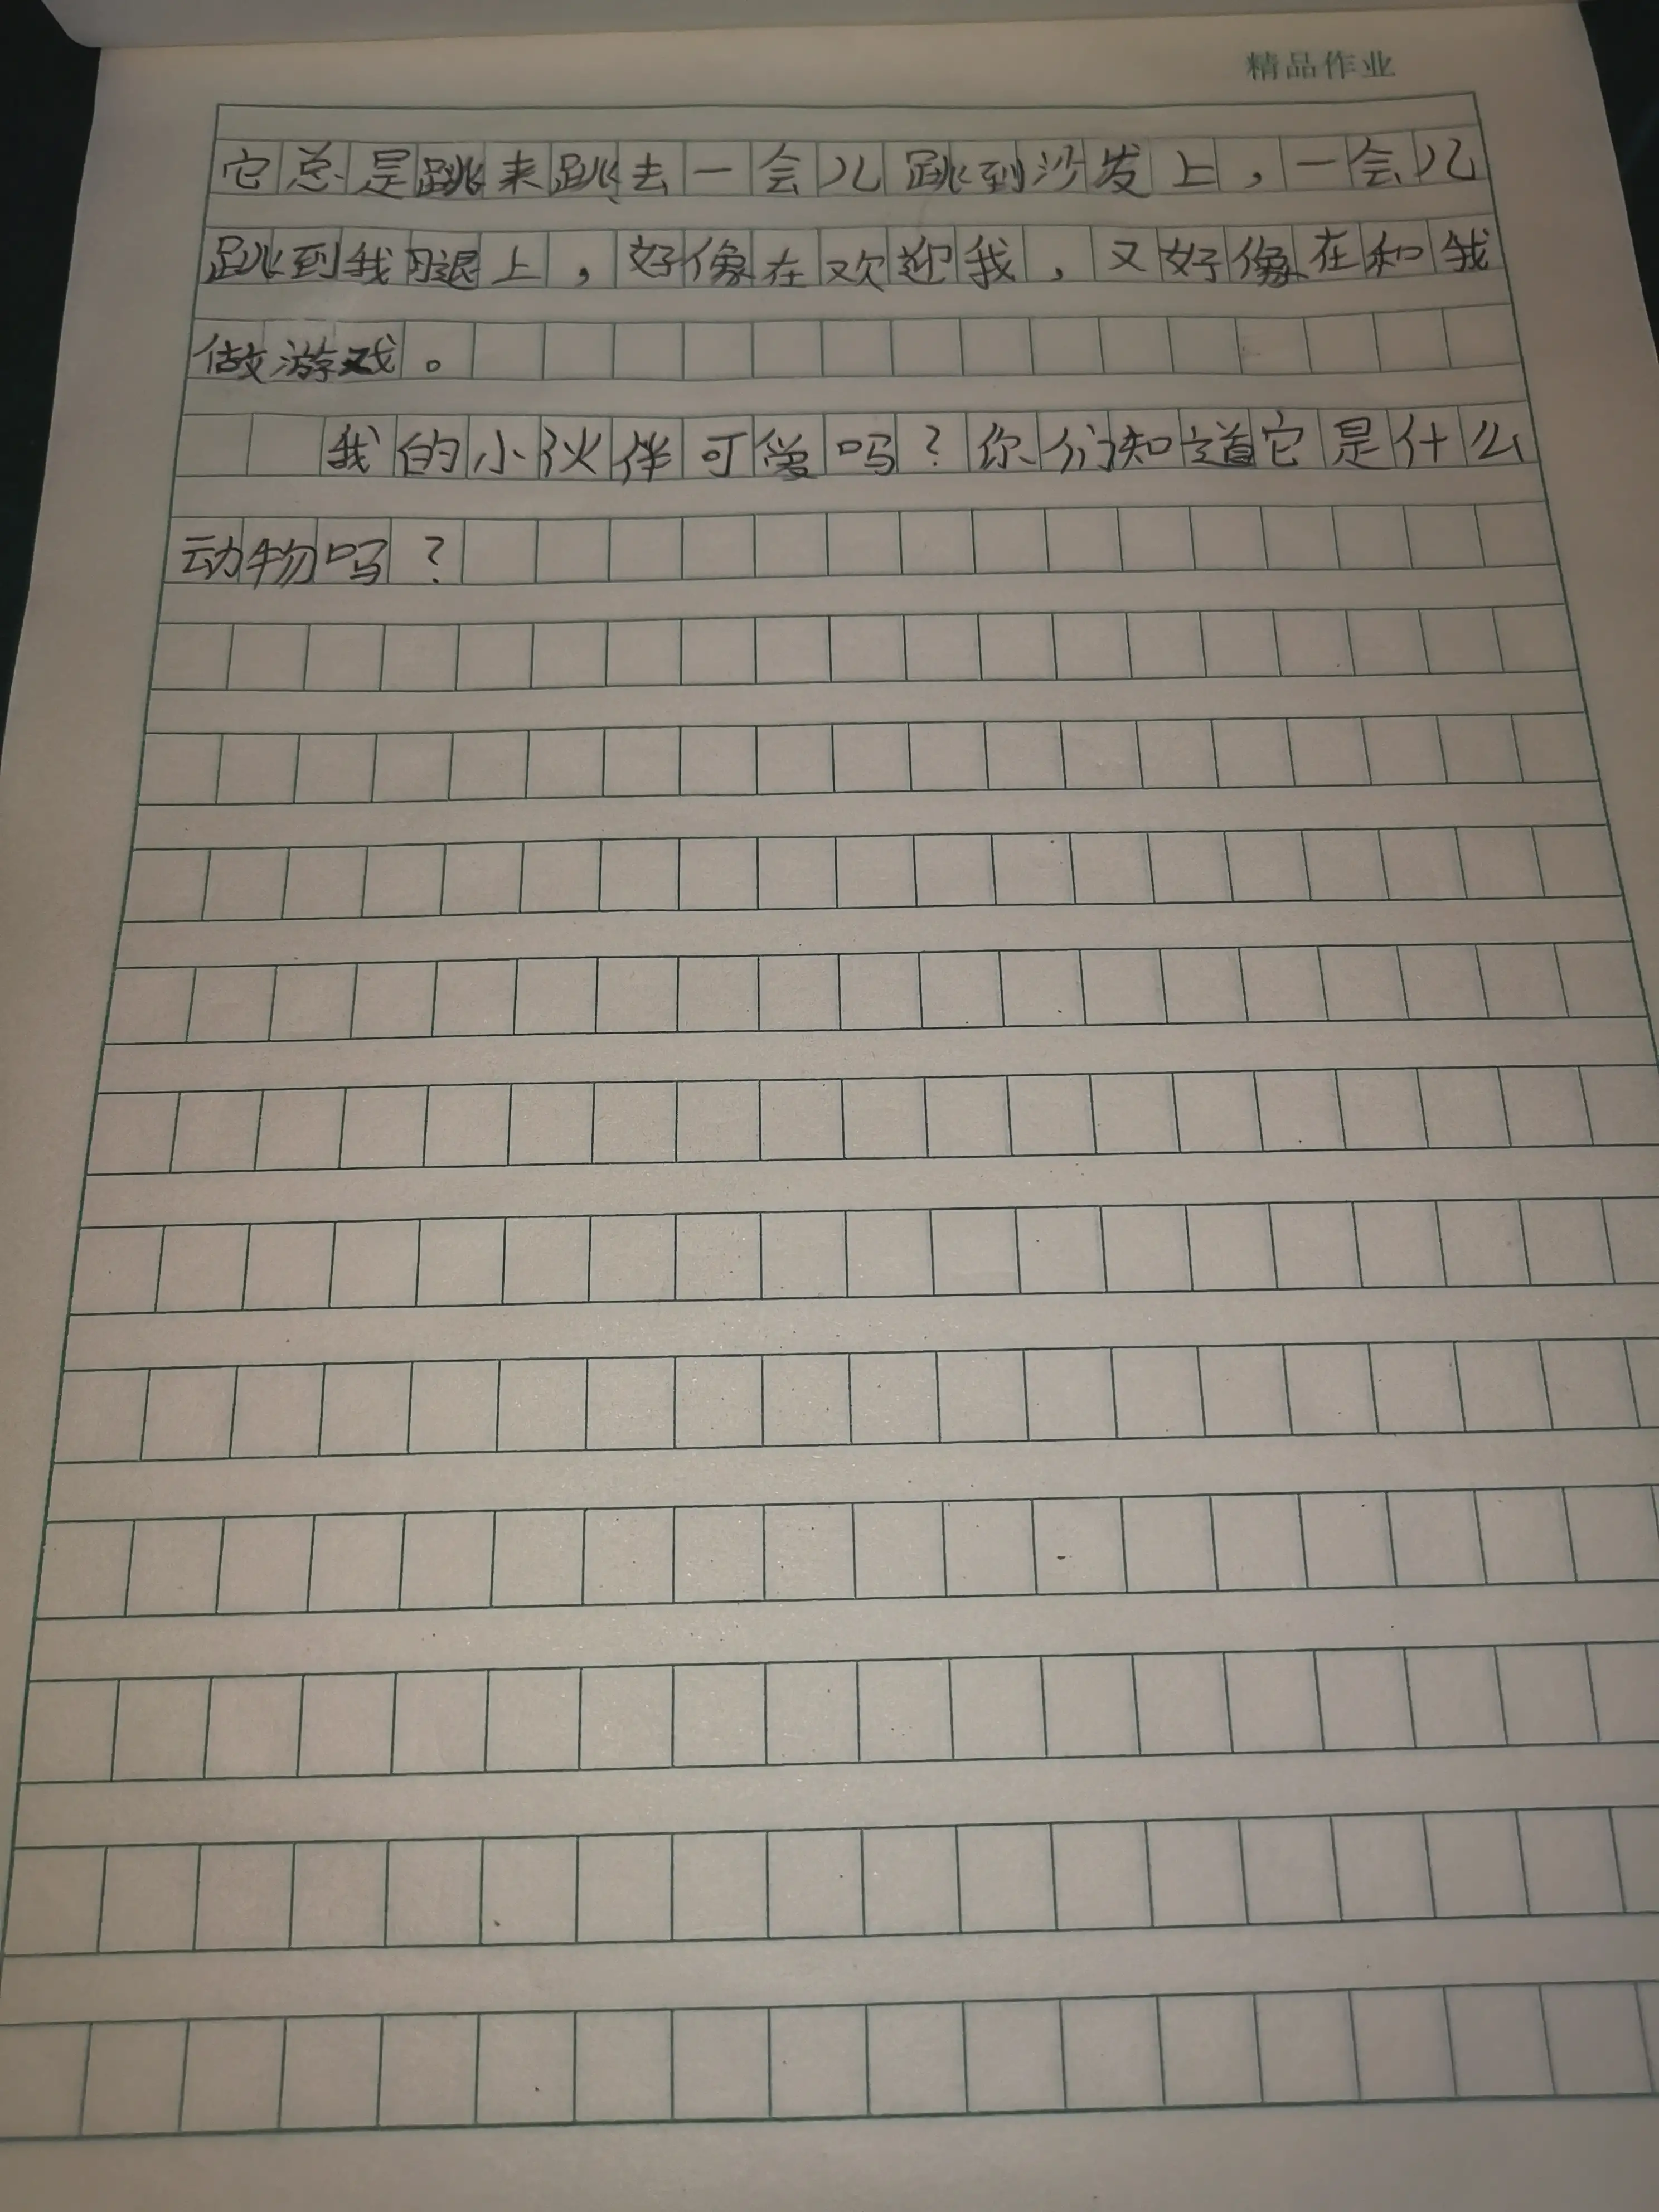 精品作业
它总是跳来跳去一会儿跳到沙发上，一会儿
跳到我腿上，好像在欢迎我，又好像在和我
做游戏。
我的小伙伴可爱吗？你们知道它是什么
动物吗？